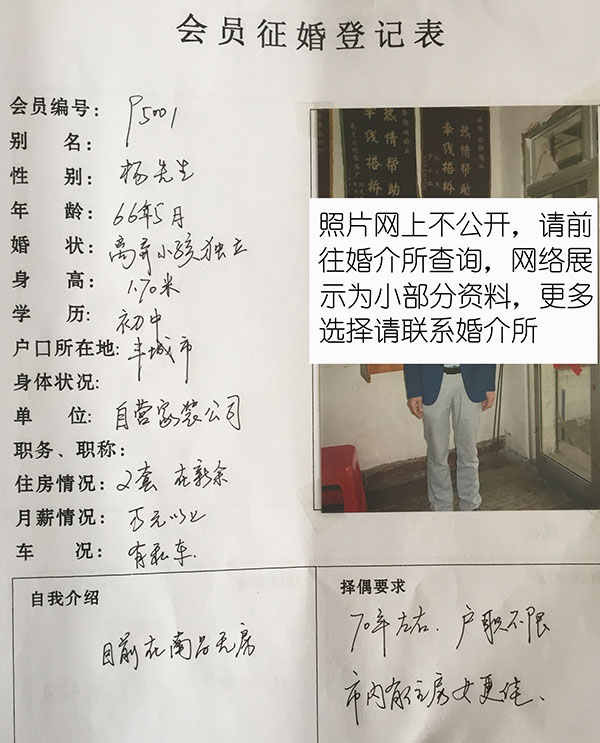 会员征婚登记表
会员编号: P5001
别 名:
性 别: 杨先生
年 龄: 66年5月
婚 状: 离异小孩独立
身 高: 1.70米
学 历: 初中
户口所在地: 丰城市
身体状况:
单 位: 自营家装公司
职务、职称:
住房情况: 2套 在新余
月薪情况: 万元以上
车 况: 有私车.
热情帮助
牵线搭桥
热情帮助
牵线搭桥
照片网上不公开，请前
往婚介所查询，网络展
示为小部分资料，更多
选择请联系婚介所
自我介绍
目前在南昌无房
择偶要求
70年左右. 户职不限
市内有住房女更佳、